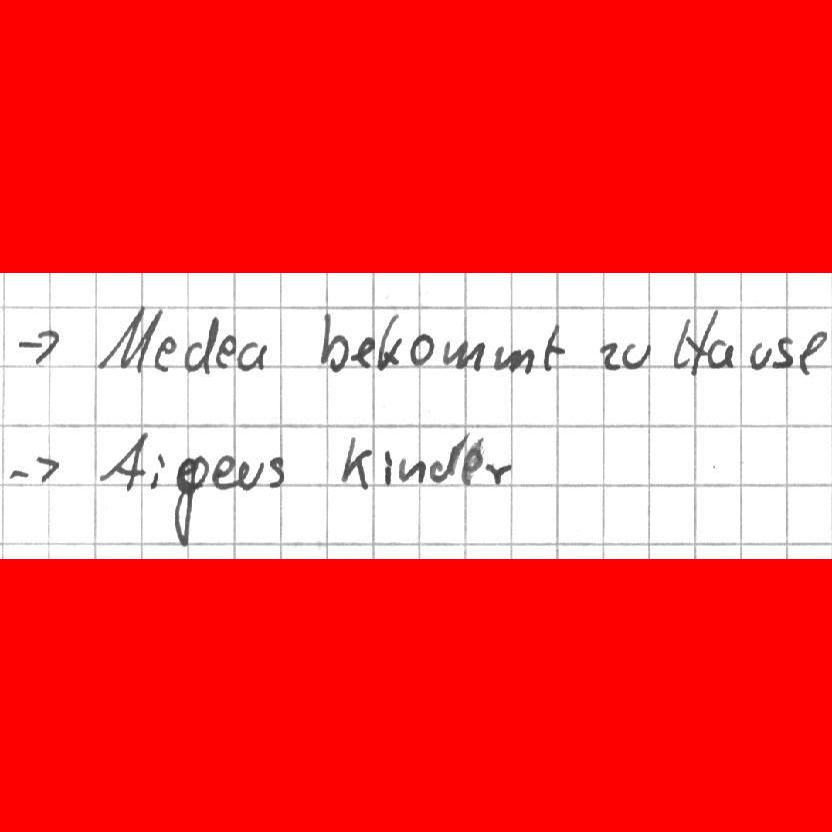 -> Medea bekommt zu Hause
-> Aigeus Kinder